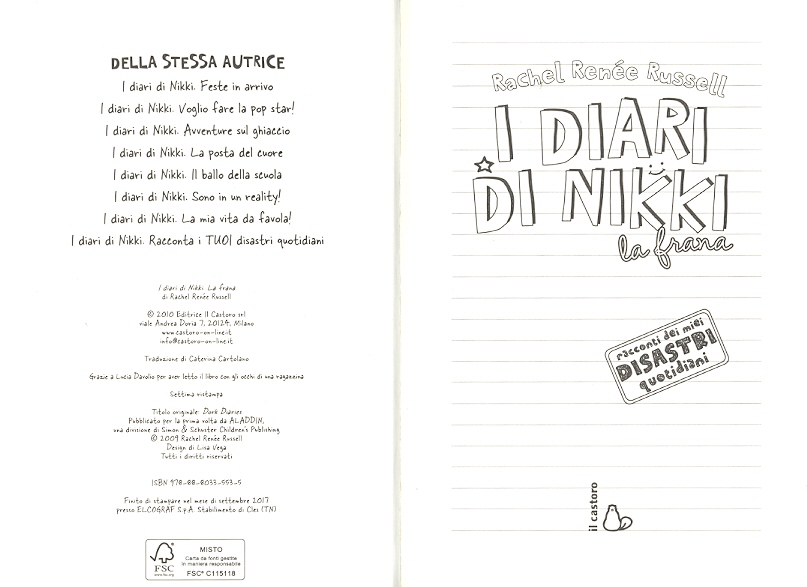 DELLA STESSA AUTRICE
I diari di Nikki. Feste in arrivo
I diari di Nikki. Voglio fare la pop star!
I diari di Nikki. Avventure sul ghiaccio
I diari di Nikki. La posta del cuore
I diari di Nikki. Il ballo della scuola
I diari di Nikki. Sono in un reality!
I diari di Nikki. La mia vita da favola!
I diari di Nikki. Racconta i TUOI disastri quotidiani
I diari di Nikki. La frana
di Rachel Renée Russell
© 2010 Editrice Il Castoro srl
viale Andrea Doria 7, 20124, Milano
www.castoro-on-line.it
info@castoro-on-line.it
Traduzione di Caterina Cartolano
Grazie a Lucia Davolio per aver letto il libro con gli occhi di una ragazzina
Settima ristampa
Titolo originale: Dork Diaries
Pubblicato per la prima volta da ALADDIN,
una divisione di Simon & Schuster Children's Publishing
© 2009 Rachel Renée Russell
Design di Lisa Vega
Tutti i diritti riservati
ISBN 978-88-8033-553-5
Finito di stampare nel mese di settembre 2017
presso ELCOGRAF S.p.A. Stabilimento di Cles (TN)
FSC
www.fsc.org
MISTO
Carta da fonti gestite
in maniera responsabile
FSC® C115118
Rachel Renée Russell
I DIARI
DI NIKKI
la frana
racconti dei miei
DISASTRI
quotidiani
il castoro